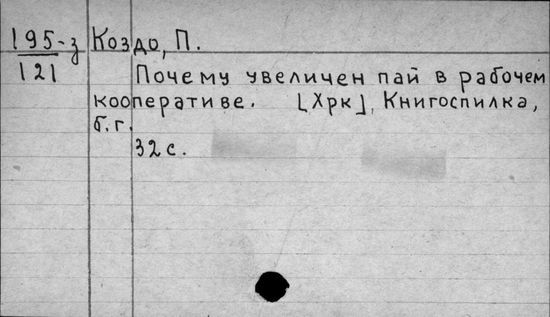 195-з Коздо, П.
121
Почему увеличен пай в рабочем
кооперативе. [Хрк], Книгоспилка,
б.г.
32 с.